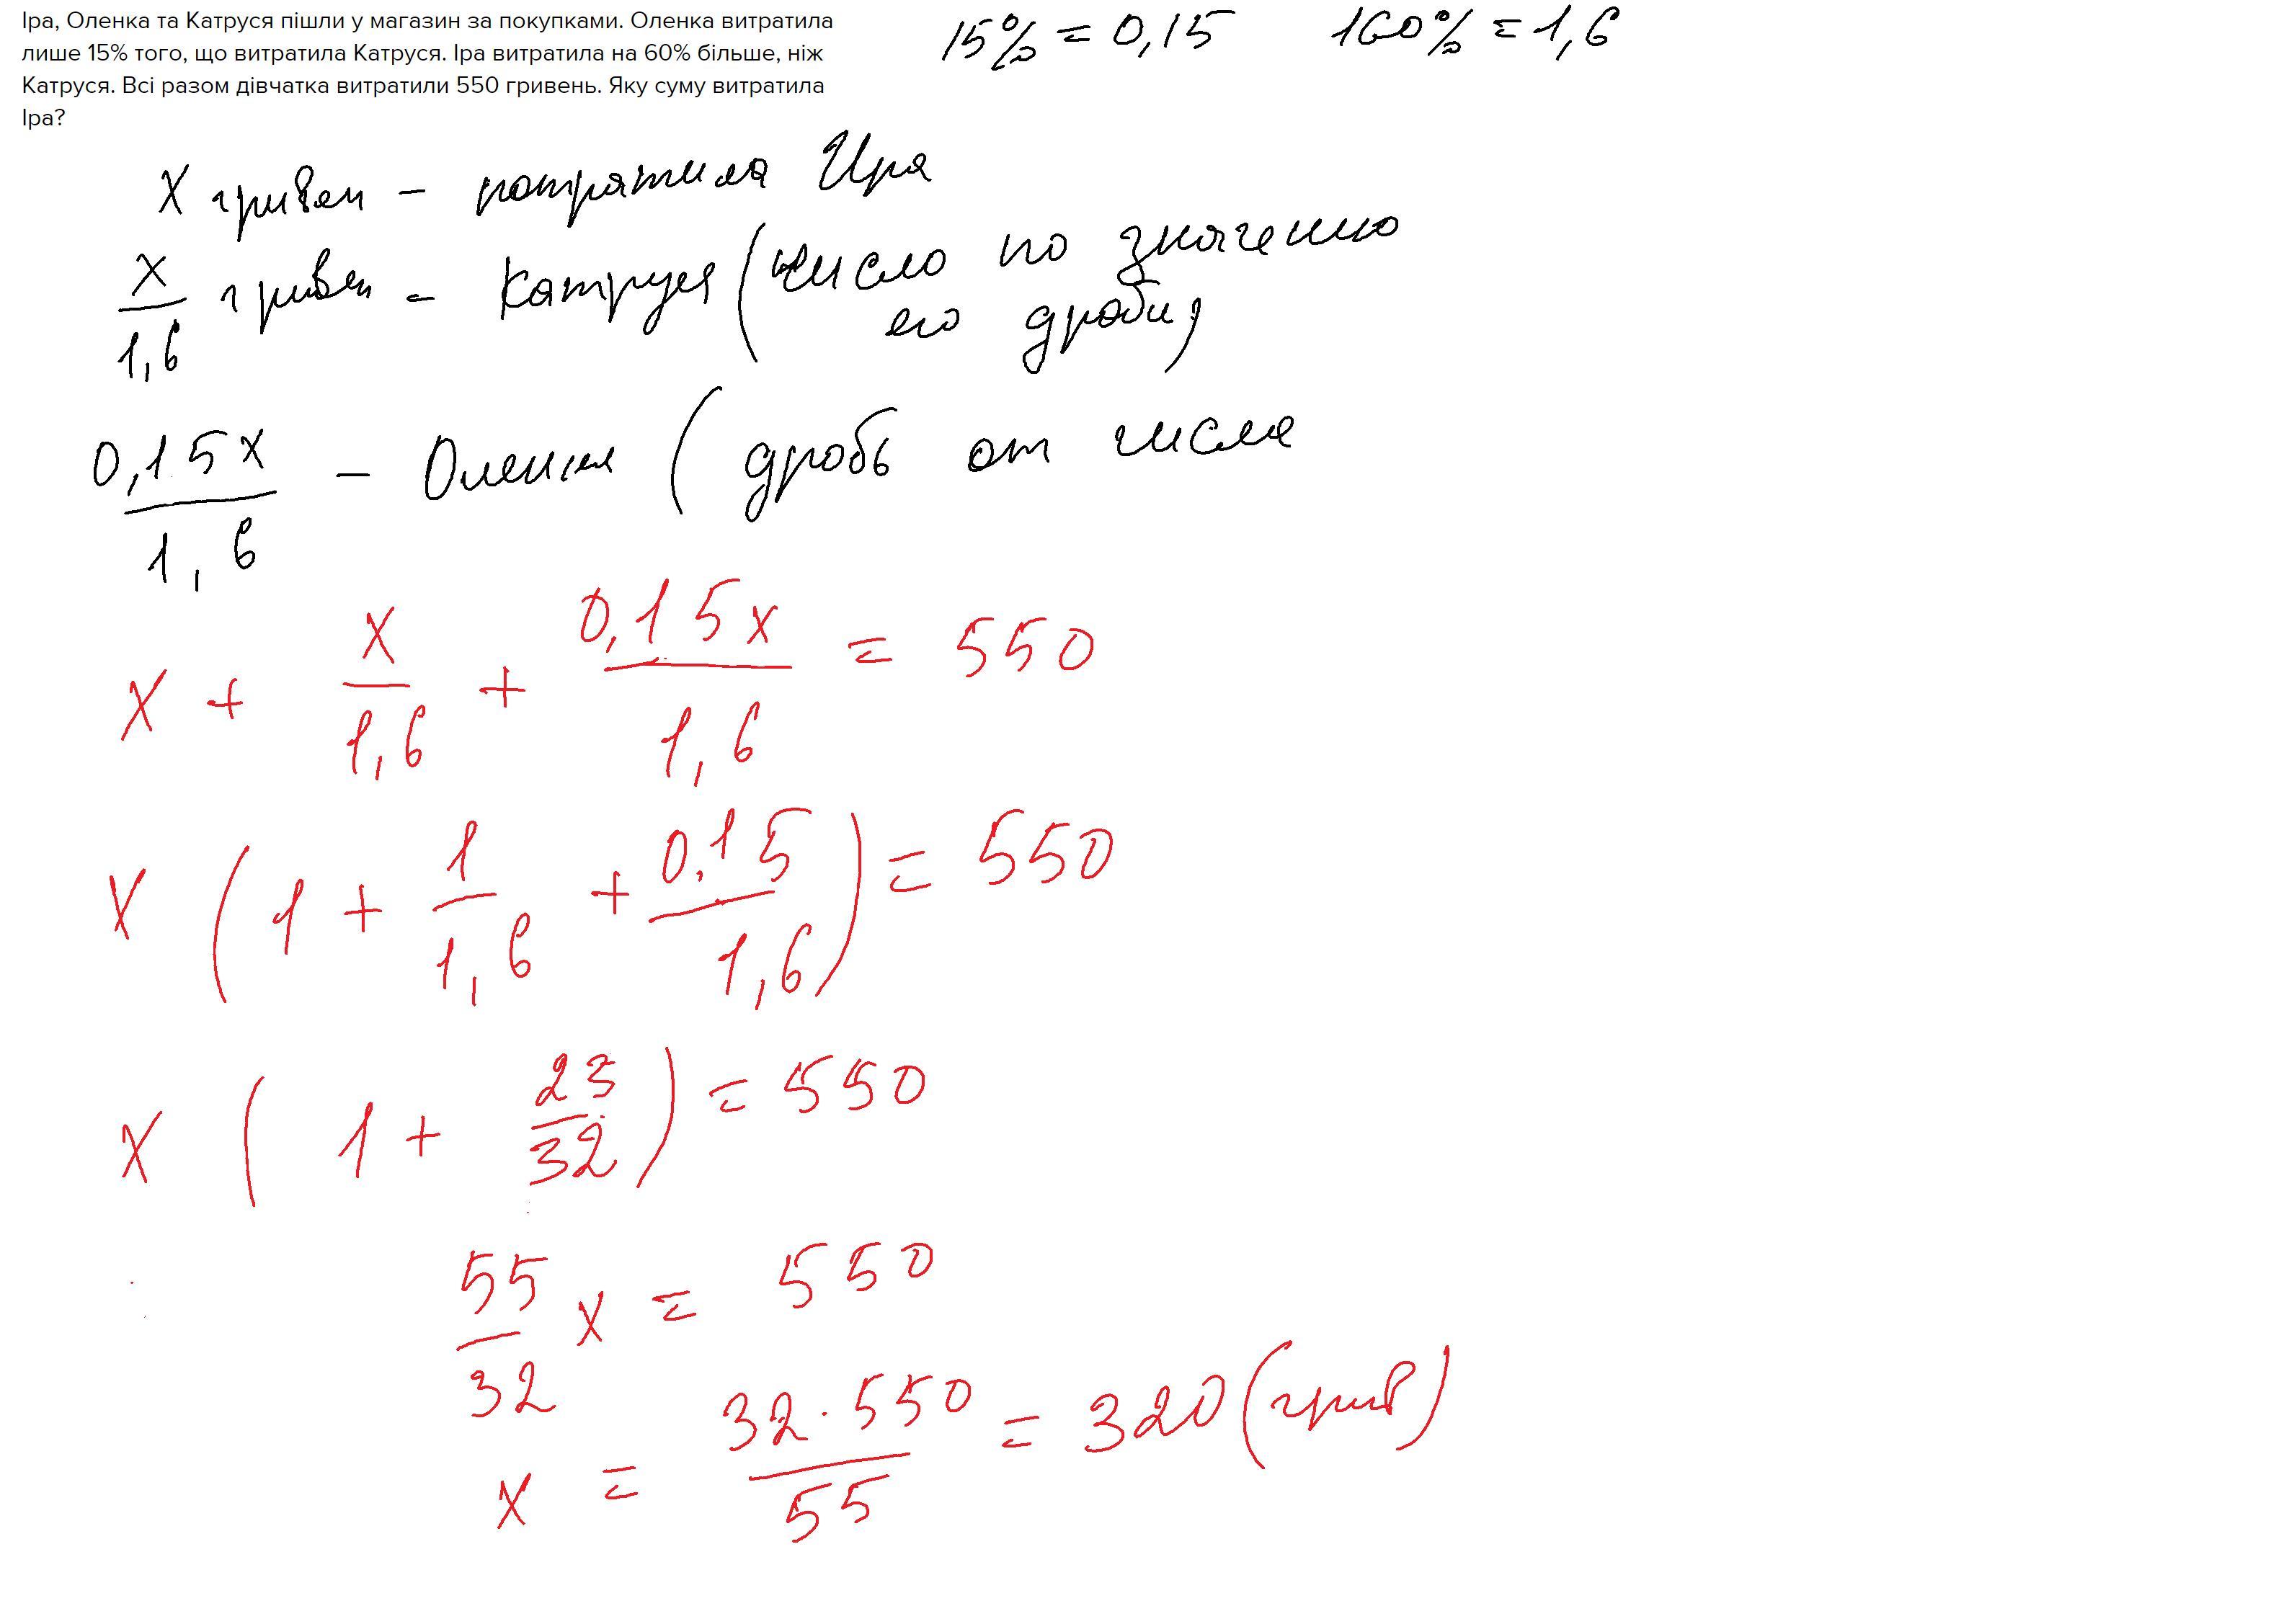 Іра, Оленка та Катруся пішли у магазин за покупками. Оленка витратила
лише 15% того, що витратила Катруся. Іра витратила на 60% більше, ніж
Катруся. Всі разом дівчатка витратили 550 гривень. Яку суму витратила
Іра?
15% = 0,15 160% = 1,6
x гривен – потратила Ира
x/1,6 гривен – Катруся (число по значению
его дроби)
0,15x/1,6 – Оленка (дробь от числа
x + x/1,6 + 0,15x/1,6 = 550
x (1 + 1/1,6 + 0,15/1,6) = 550
x (1 + 23/32) = 550
55/32 x = 550
x = 32·550/55 = 320 (грив)